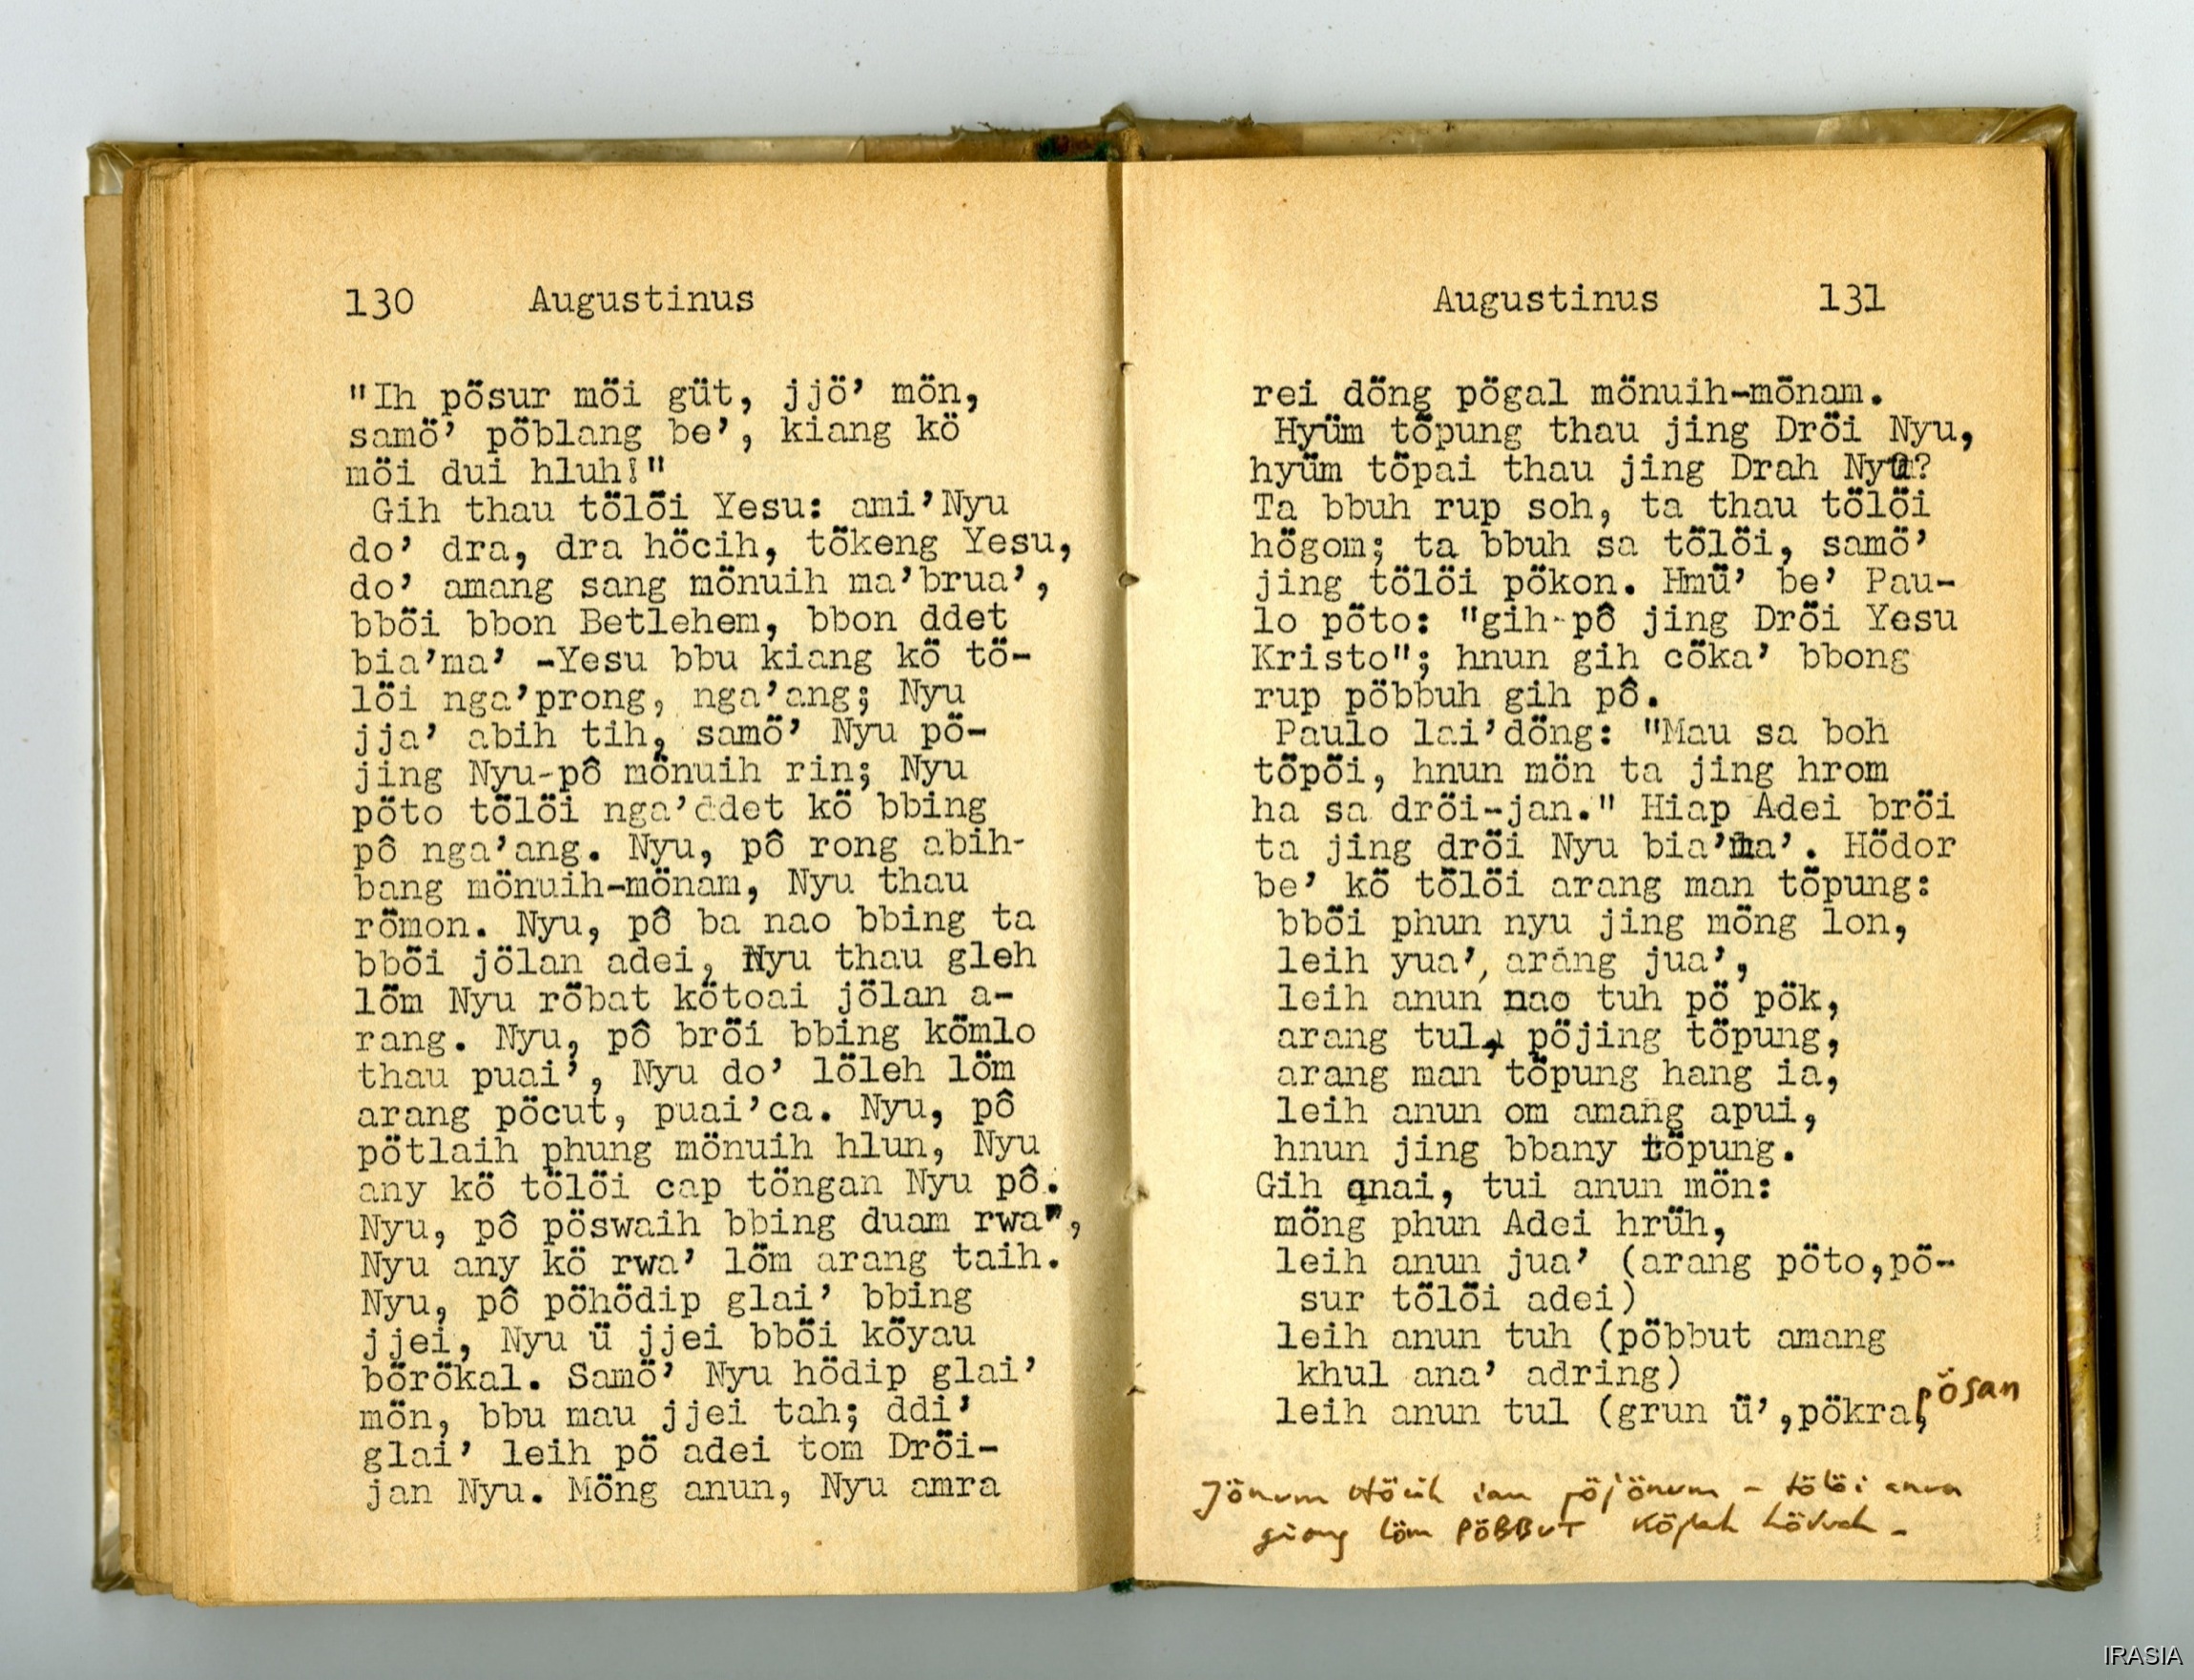 130 Augustinus
"Ih pösur mơ̈i güt, jjö’ mön,
samö’ pöblang be’, kiang kö
mơ̈i dui hluh!"
Gih thau tölöi Yesu: ami’Nyu
do’ dra, dra höcih, tökeng Yesu,
do’ amang sang mönuih ma’brua’,
bböi bbon Betlehem, bbon ddet
bia’ma’ -Yesu bbu kiang kö tö-
löi nga’prong, nga’ang; Nyu
jja’ abih tih, samö’ Nyu pö-
jing Nyu-pô mönuih rin; Nyu
pöto tölöi nga’ddet kö bbing
pô nga’ang. Nyu, pô rong abih-
bang mönuih-mönam, Nyu thau
römon. Nyu, pô ba nao bbing ta
bböi jölan adei, Nyu thau gleh
löm Nyu röbat kötoai jölan a-
rang. Nyu, pô bröi bbing kömlo
thau puai’, Nyu do’ löleh löm
arang pöcut, puai’ca. Nyu, pô
pötlaih phung mönuih hlun, Nyu
any kö tölöi cap töngan Nyu pô.
Nyu, pô pöswaih bbing duam rwa",
Nyu any kö rwa’ löm arang taih.
Nyu, pô pöhödip glai’ bbing
jjei, Nyu ü jjei bböi köyau
börökal. Samö’ Nyu hödip glai’
mön, bbu mau jjei tah; ddi’
glai’ leih pö adei tom Dröi-
jan Nyu. Möng anun, Nyu amra
Augustinus 131
rei döng pögal mönuih-mönam.
Hyüm töpung thau jing Dröi Nyu,
hyüm töpai thau jing Drah Nyu?
Ta bbuh rup soh, ta thau tölöi
högom; ta bbuh sa tölöi, samö’
jing tölöi pökon. Hmü’ be’ Pau-
lo pöto: "gih-pô jing Dröi Yesu
Kristo"; hnun gih cöka’ bbong
rup pöbbuh gih pô.
Paulo lai’döng: "Mau sa boh
töpöi, hnun mön ta jing hrom
ha sa dröi-jan." Hiap Adei bröi
ta jing dröi Nyu bia’ma’. Hödor
be’ kö tölöi arang man töpung:
bböi phun nyu jing möng lon,
leih yua’, arang jua’,
leih anun nao tuh pö pök,
arang tul, pöjing töpung,
arang man töpung hang ia,
leih anun om amang apui,
hnun jing bbany töpung.
Gih anai, tui anun mön:
möng phun Adei hrüh,
leih anun jua’ (arang pöto,pö-
sur tölöi adei)
leih anun tuh (pöbbut amang
khul ana’ adring)
leih anun tul (grun ü’,pökra, pösan
Jönum pöjönum - tölöi
giong löm PÖBBUT